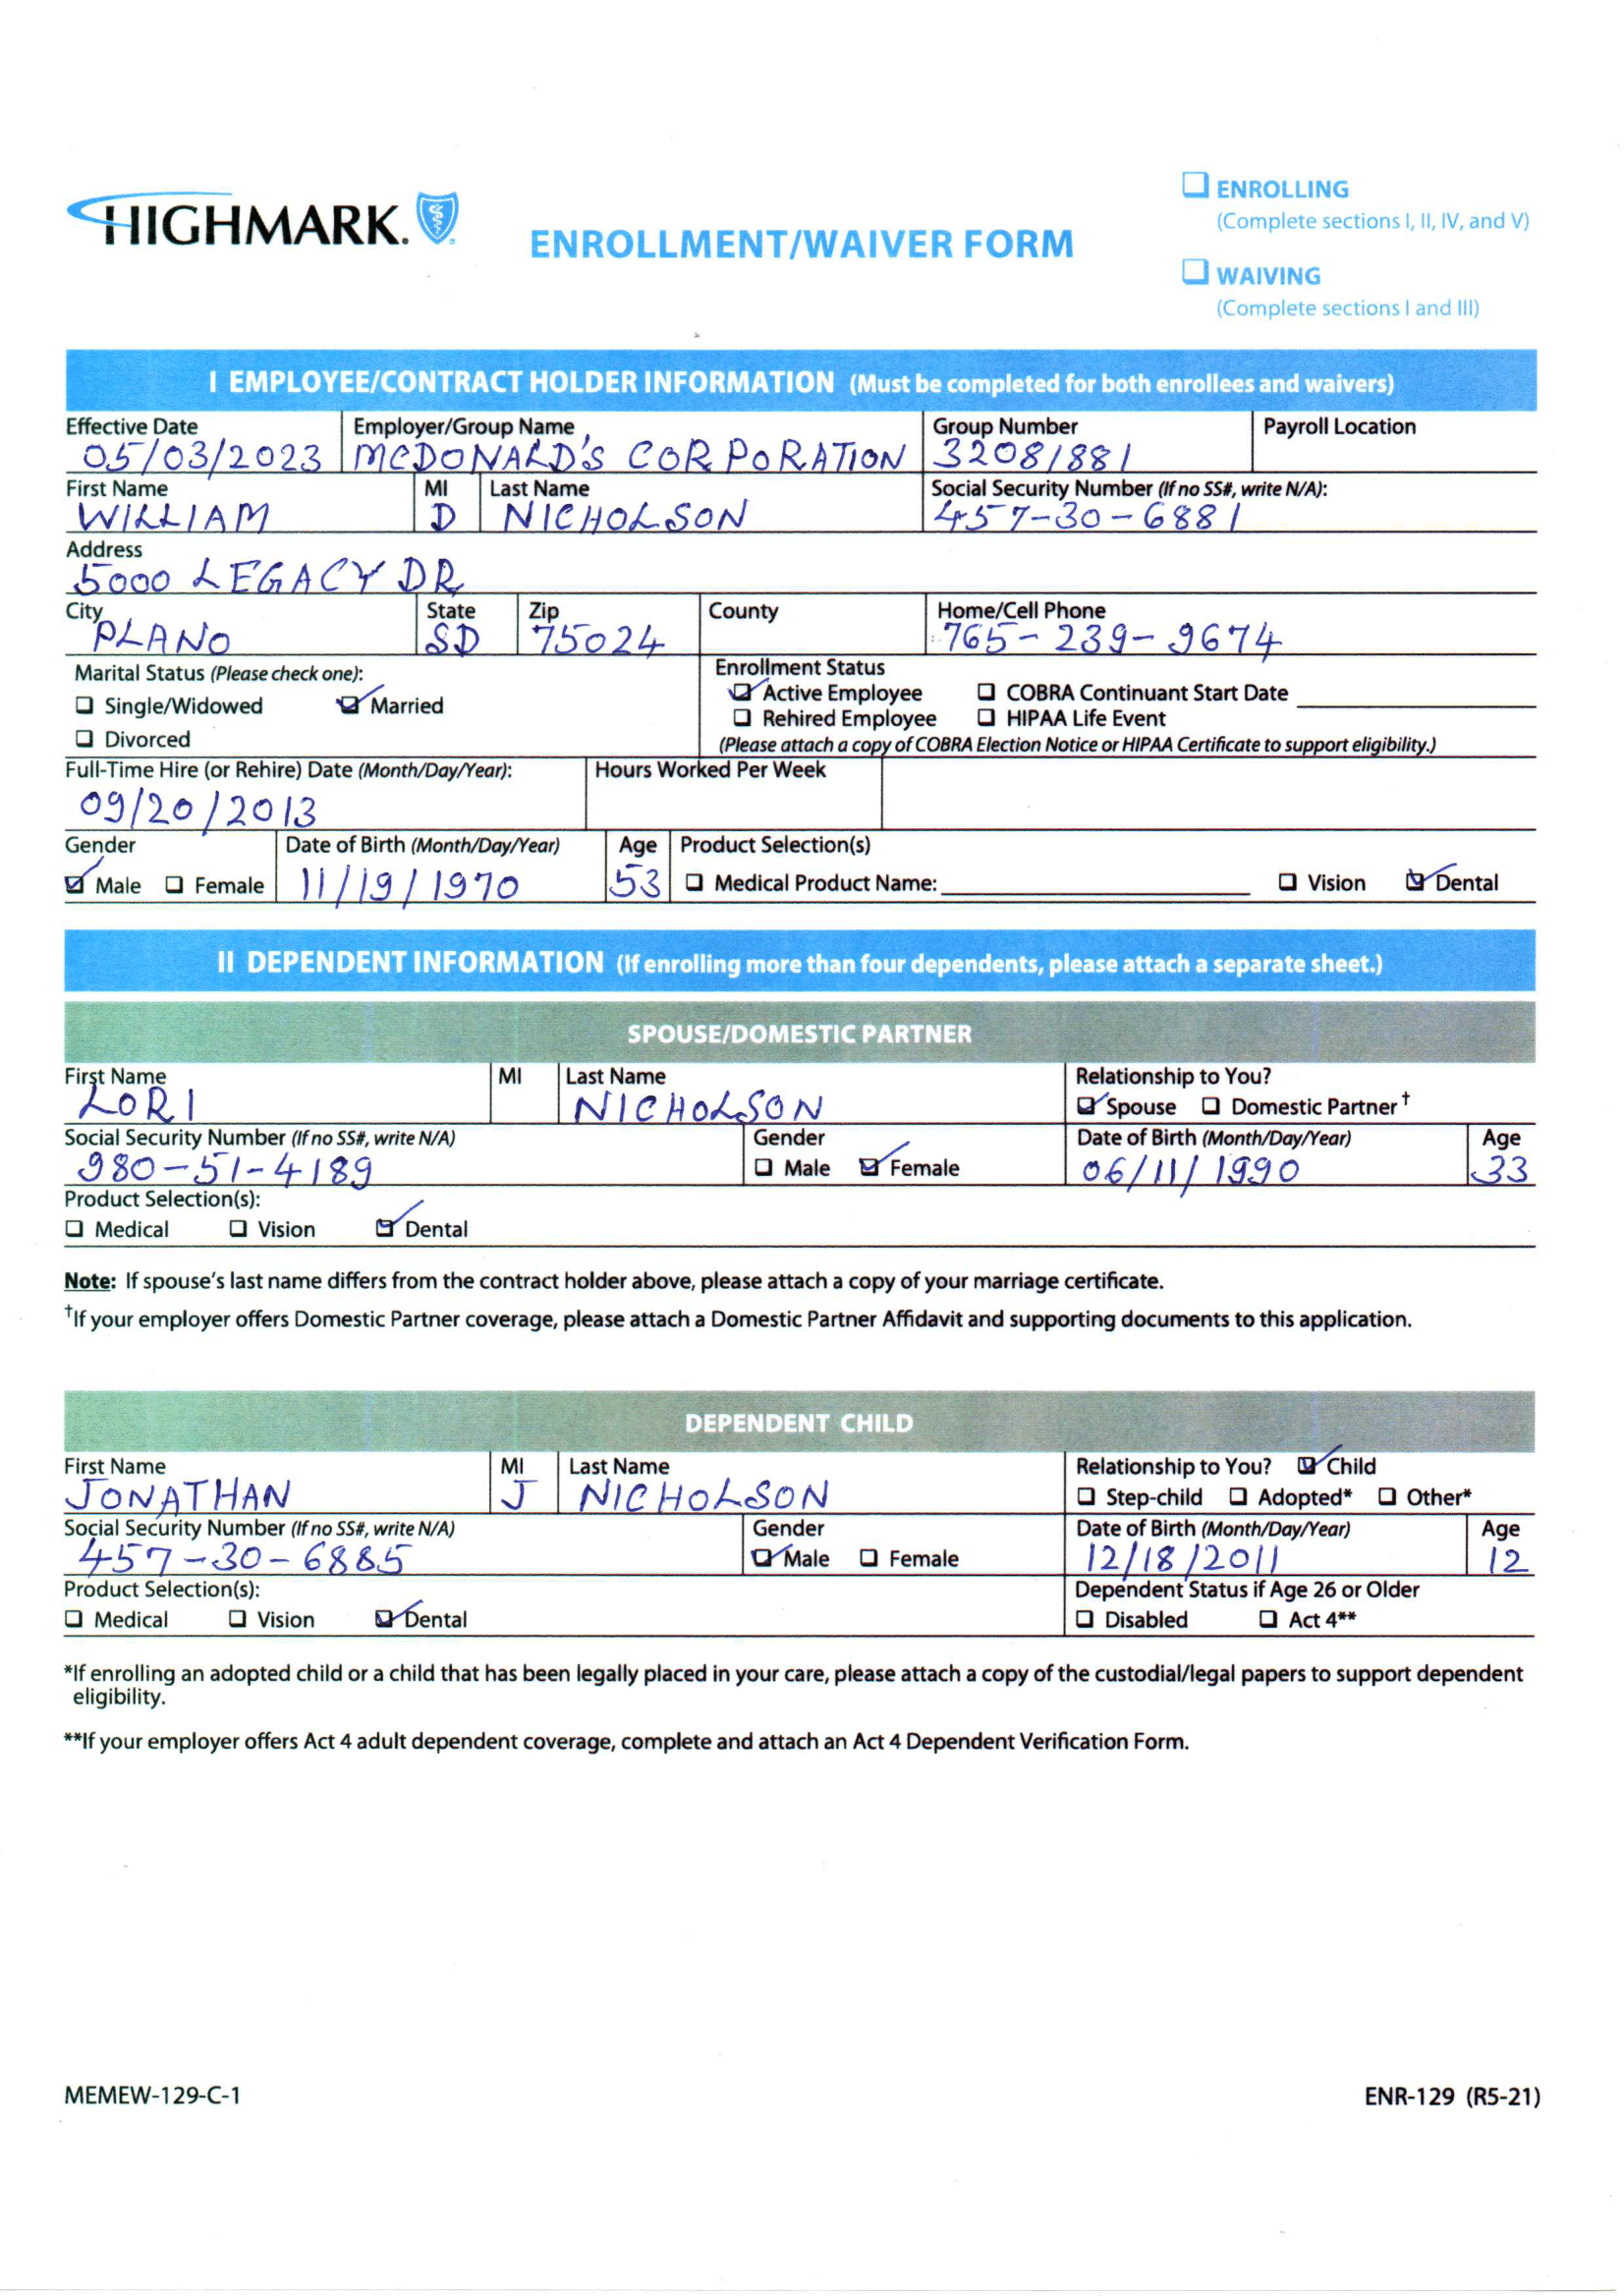 HIGHMARK.
ENROLLMENT/WAIVER FORM
ENROLLING
(Complete sections I, II, IV, and V)
WAIVING
(Complete sections I and III)
I EMPLOYEE/CONTRACT HOLDER INFORMATION (Must be completed for both enrollees and waivers)
Effective Date Employer/Group Name Group Number Payroll Location
05/03/2023 MCDONALD'S CORPORATION 32081881
First Name MI Last Name Social Security Number (If no SS#, write N/A):
WILLIAM D NICHOLSON 457-30-6881
Address
5000 LEGACY DR
City State Zip County Home/Cell Phone
PLANO SD 75024 765-239-9674
Marital Status (Please check one): Enrollment Status
Single/Widowed Married Active Employee COBRA Continuant Start Date
Rehired Employee HIPAA Life Event
Divorced (Please attach a copy of COBRA Election Notice or HIPAA Certificate to support eligibility.)
Full-Time Hire (or Rehire) Date (Month/Day/Year): Hours Worked Per Week
09/20/2013
Gender Date of Birth (Month/Day/Year) Age Product Selection(s)
Male Female 11/19/1970 53 Medical Product Name: Vision Dental
II DEPENDENT INFORMATION (If enrolling more than four dependents, please attach a separate sheet.)
SPOUSE/DOMESTIC PARTNER
First Name MI Last Name Relationship to You?
LORI NICHOLSON Spouse Domestic Partner†
Social Security Number (If no SS#, write N/A) Gender Date of Birth (Month/Day/Year) Age
980-51-4189 Male Female 06/11/1990 33
Product Selection(s):
Medical Vision Dental
Note: If spouse's last name differs from the contract holder above, please attach a copy of your marriage certificate.
†If your employer offers Domestic Partner coverage, please attach a Domestic Partner Affidavit and supporting documents to this application.
DEPENDENT CHILD
First Name MI Last Name Relationship to You? Child
JONATHAN J NICHOLSON Step-child Adopted* Other*
Social Security Number (If no SS#, write N/A) Gender Date of Birth (Month/Day/Year) Age
457-30-6885 Male Female 12/18/2011 12
Product Selection(s): Dependent Status if Age 26 or Older
Medical Vision Dental Disabled Act 4**
*If enrolling an adopted child or a child that has been legally placed in your care, please attach a copy of the custodial/legal papers to support dependent
eligibility.
**If your employer offers Act 4 adult dependent coverage, complete and attach an Act 4 Dependent Verification Form.
MEMEW-129-C-1 ENR-129 (R5-21)